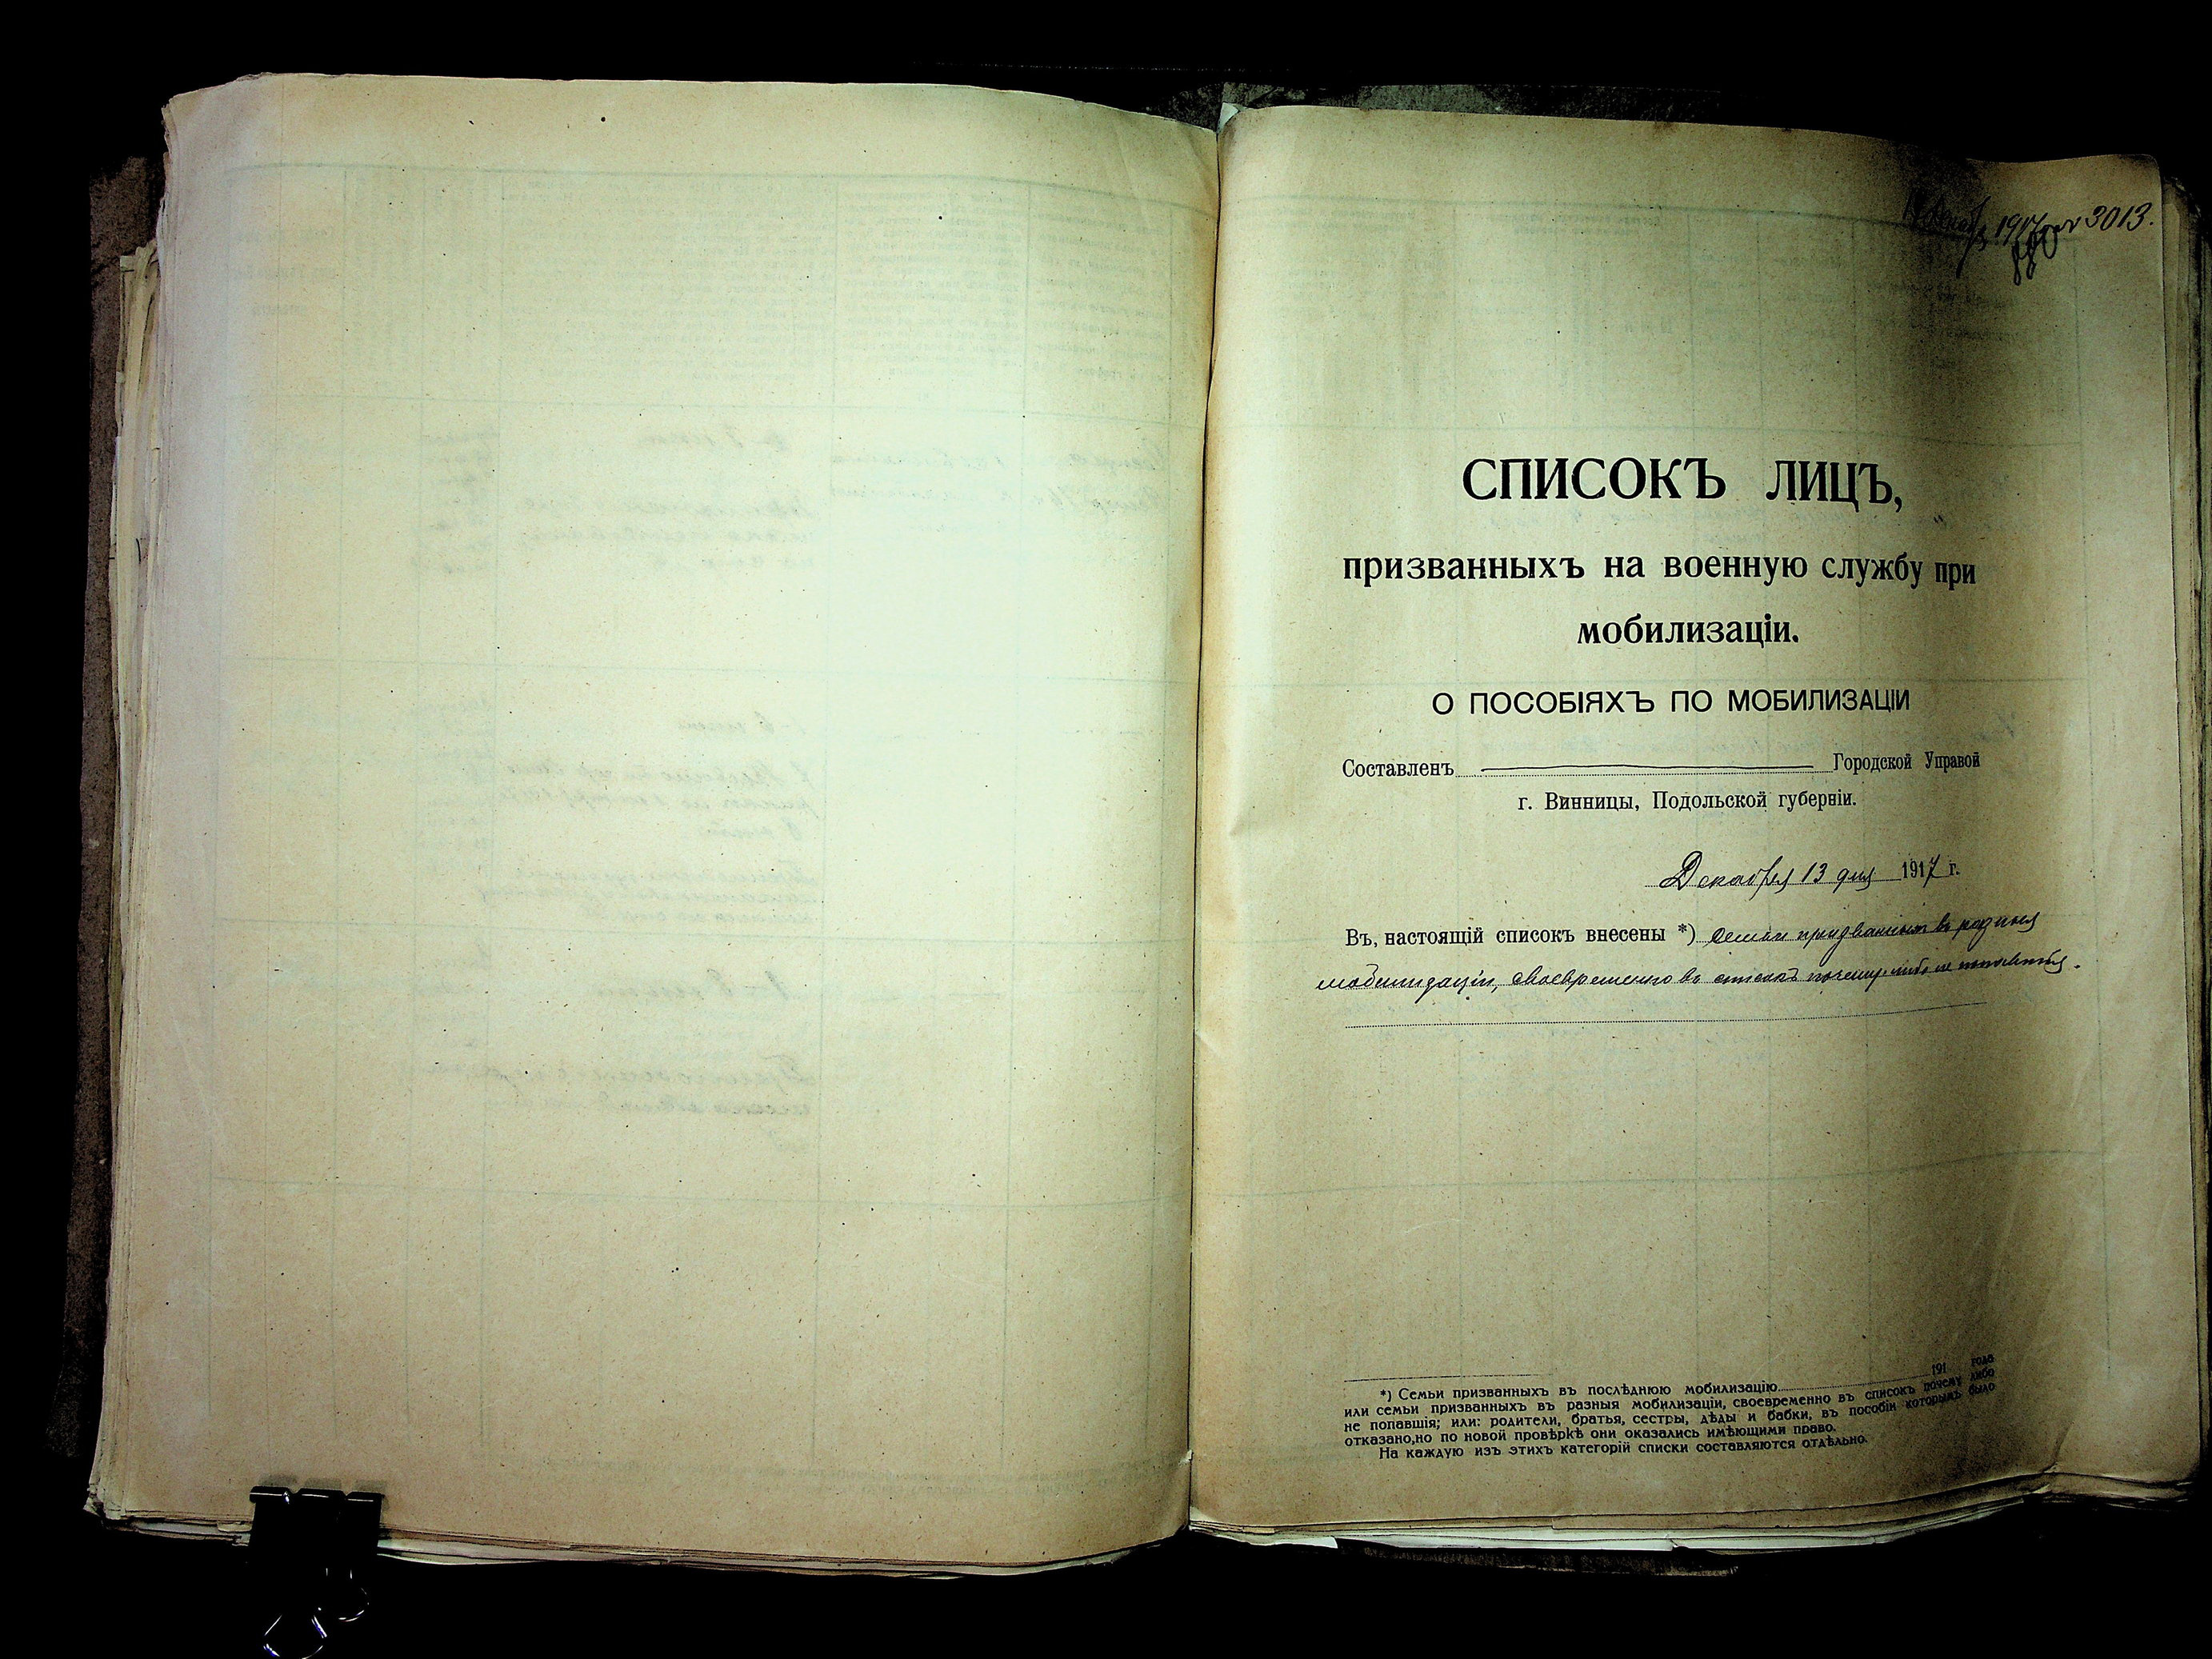 1917 3013.
880
СПИСОКЪ ЛИЦЪ,
призванныхъ на военную службу при
мобилизаціи.
О ПОСОБІЯХЪ ПО МОБИЛИЗАЦІИ
Составленъ Городской Управой
г. Винницы, Подольской губерніи.
Декабря 13 дня 1917 г.
Въ, настоящій списокъ внесены *) семьи призванныхъ въ разныя
мобилизаціи, своевременно въ списокъ почему-либо не
*) Семьи призванныхъ въ послѣднюю мобилизацію 191 года
или семьи призванныхъ въ разныя мобилизаціи, своевременно въ списокъ почему либо
не попавшія; или: родители, братья, сестры, дѣды и бабки, въ пособіи которымъ было
отказано,но по новой провѣркѣ они оказались имѣющими право.
На каждую изъ этихъ категорій списки составляются отдѣльно.